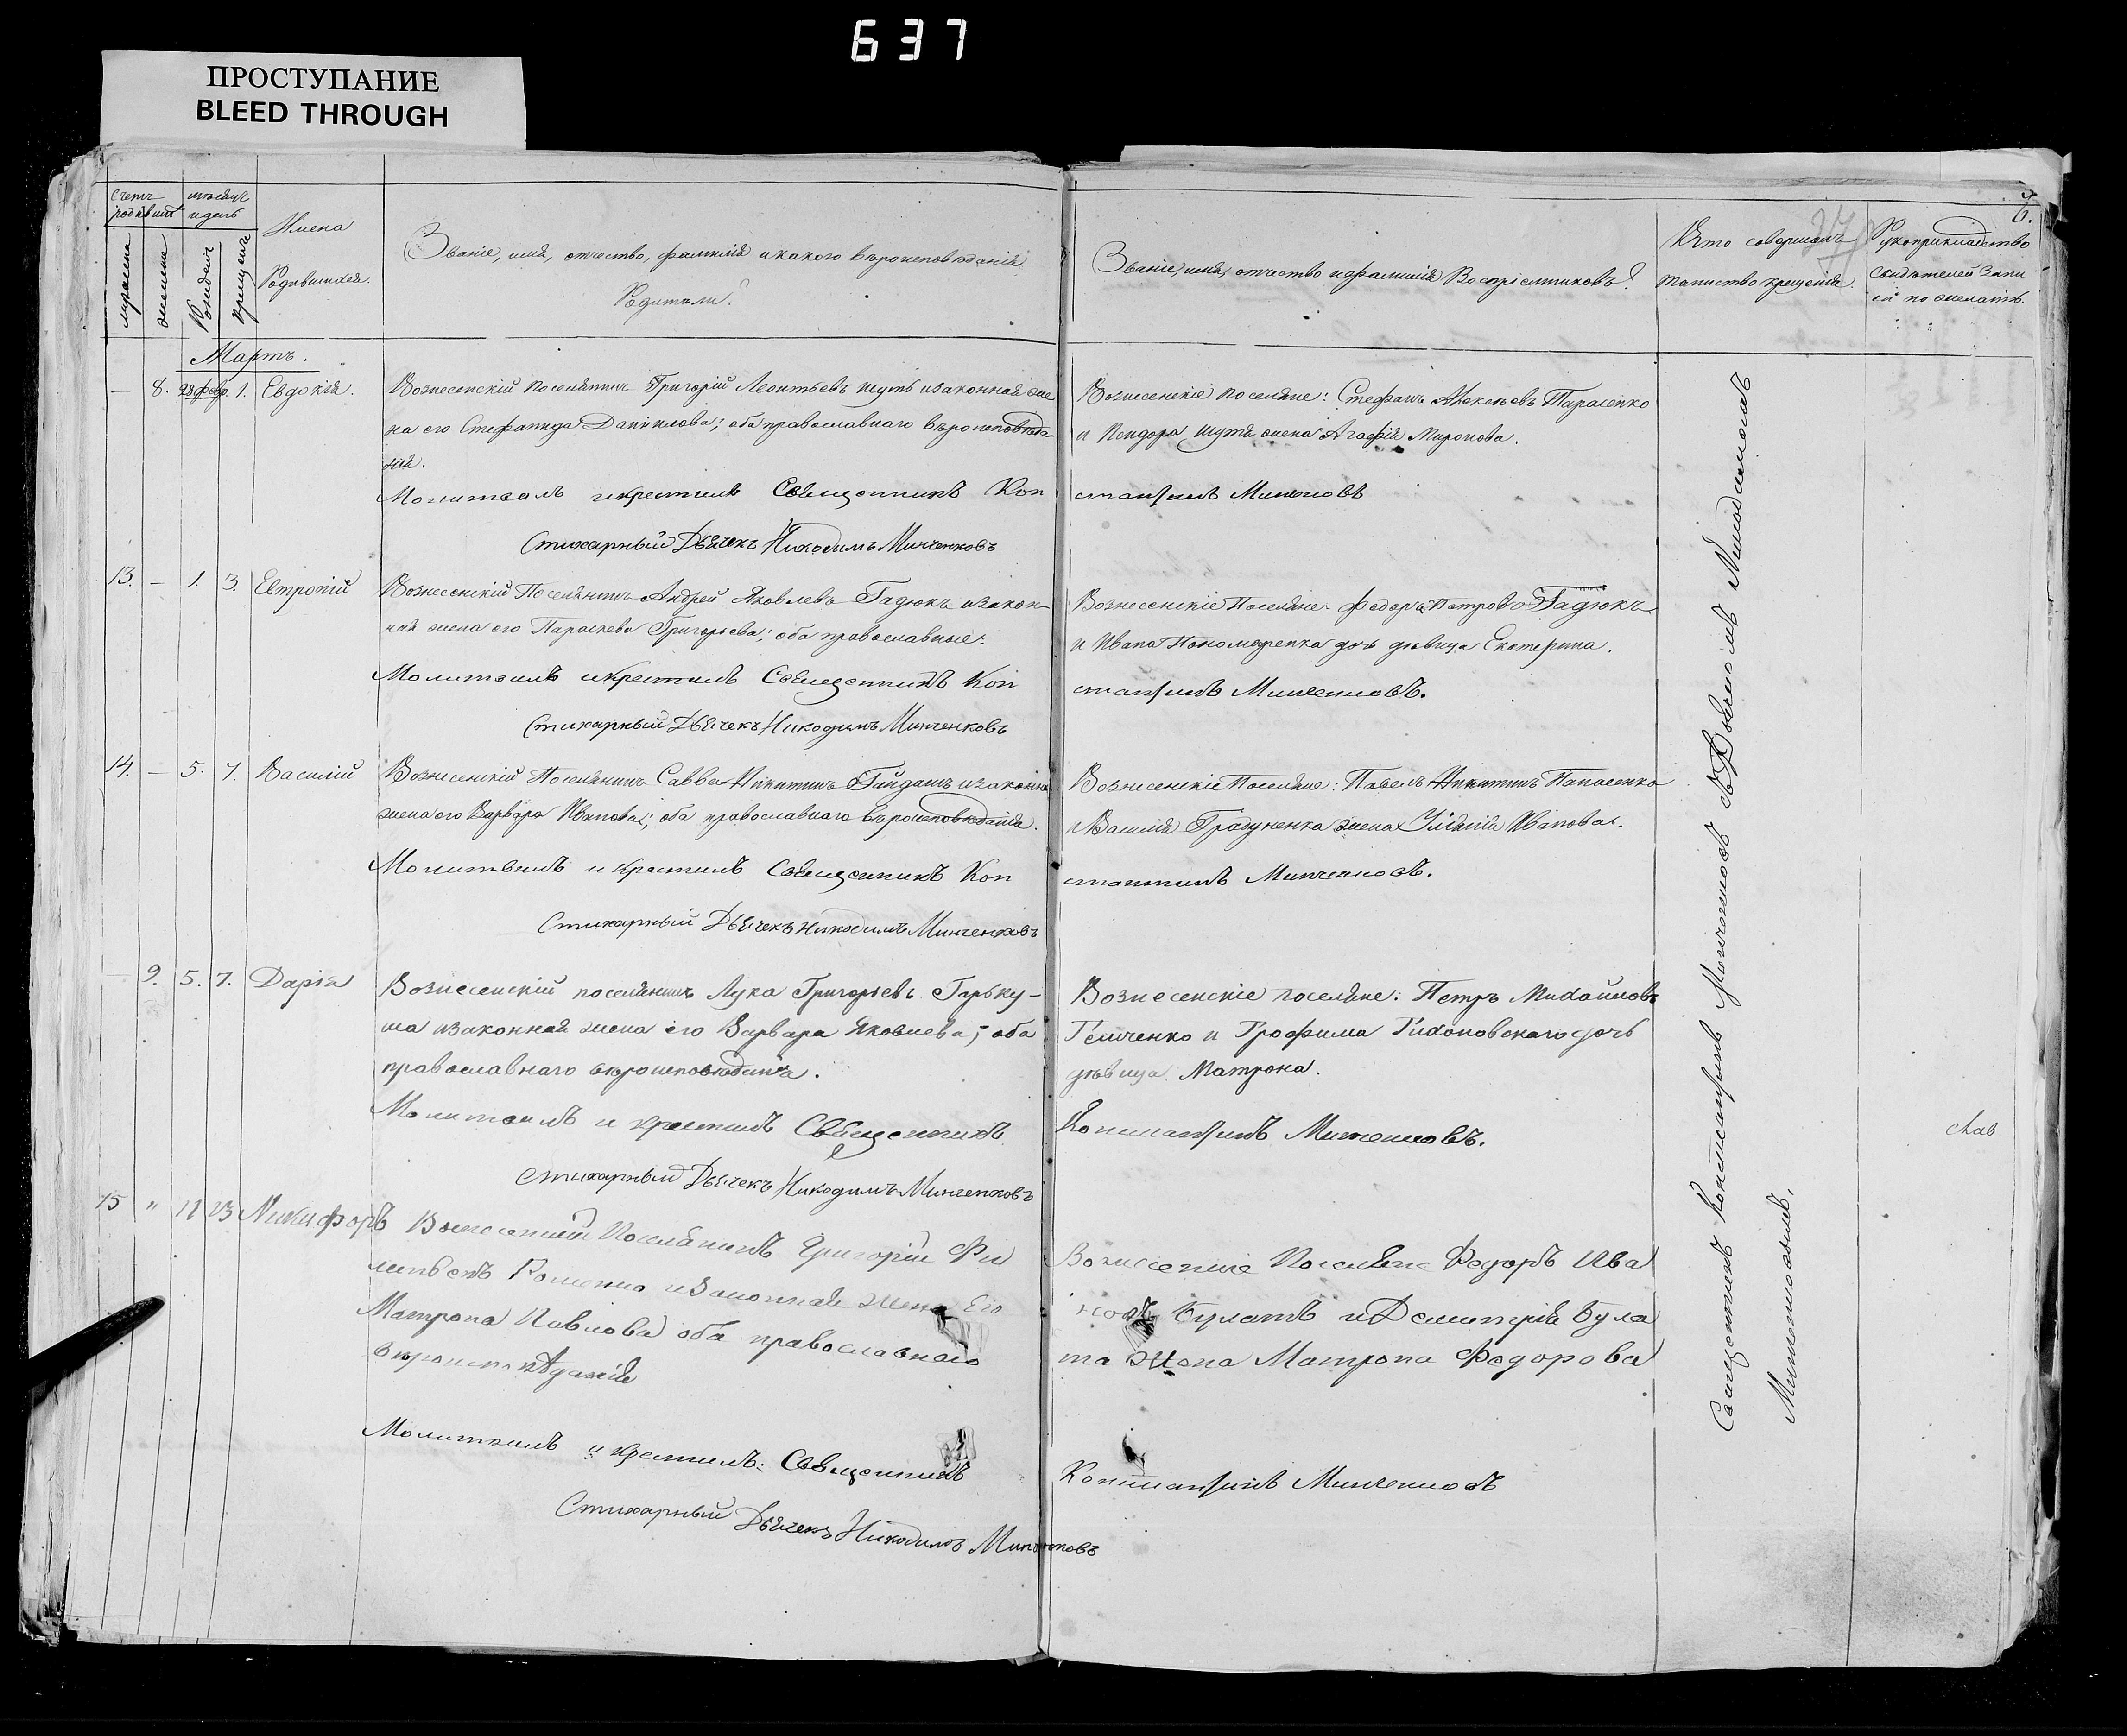 637
ПРОСТУПАНИЕ
BLEED THROUGH
Счетъ родившихся
мѣсяцъ и день
мужеска
женска
Рожденъ
крещенъ
Имена
Родившихся.
Званіе, имя, отчество, фамилія и какого вѣроисповѣданія
Родители?
Званіе, имя, отчество и фамилія Воспріемниковъ?
Кто совершалъ
таинство крещенія.
Рукоприкладство
свидѣтелей запи
си по желанію.
Мартъ.
— 8. 28 февр. 1. Евдокія.
Вознесенскій поселянинъ Григорій Леонтьевъ Шутъ и законная же
на его Стефанида Даниилова; оба православнаго вѣроисповѣда
нія.
Вознесенскіе поселяне: Стефанъ Алексѣевъ Тарасенко
и Исидора Шутя жена Агафія Миронова.
Молитвилъ и крестилъ Священникъ Кон
стантинъ Минченковъ
Стихарный Дьячекъ Никодимъ Минченковъ
13. — 1. 3. Евтропій
Вознесенскій Поселянинъ Андрей Яковлевъ Гадюкъ и закон-
ная жена его Параскева Григорьева; оба православные.
Вознесенскіе Поселяне: Федоръ Петровъ Гадюкъ
и Ивана Пономаренка дочь дѣвица Екатерина.
Молитвилъ и крестилъ Священникъ Кон
стантинъ Минченковъ.
Стихарный Дьячекъ Никодимъ Минченковъ
14. — 5. 7. Василій
Вознесенскій Поселянинъ Савва Никитинъ Гайданъ и законна
жена его Варвара Иванова; оба православнаго вѣроисповѣданія.
Вознесенскіе Поселяне: Павелъ Никитинъ Папасенко
и Василія жена Иванова.
Молитвилъ и крестилъ Священникъ Кон
стантинъ Минченковъ.
Стихарный Дьячекъ Никодимъ Минченковъ
— 9. 5. 7. Дарія
Вознесенскій поселянинъ Лука Григорьевъ Гарку-
ша и законная жена его Варвара Яковлева; оба
православнаго вѣроисповѣданія.
Вознесенскіе поселяне: Петръ Михайловъ
и Трофима Тихоновскаго дочь
дѣвица Матрона.
Молитвилъ и крестилъ Священникъ
Константинъ Минченковъ.
Стихарный Дьячекъ Никодимъ Минченковъ
15 " 11 13 Никифоръ
Вознесенскій Поселянинъ Григорій Фи
и законная жена Его
Матрона Павлова оба православнаго
вѣроисповѣданія
Вознесенскіе Поселяне Федоръ Ива
новъ Булатъ и Демитрія Була
та жена Матрона Федорова
Молитвилъ и крестилъ: Священникъ
Константинъ Минченковъ
Стихарный Дьячекъ Никодимъ Минченковъ
Священникъ Константинъ Минченковъ съ Дьячкомъ Никодимомъ
Минченковымъ.